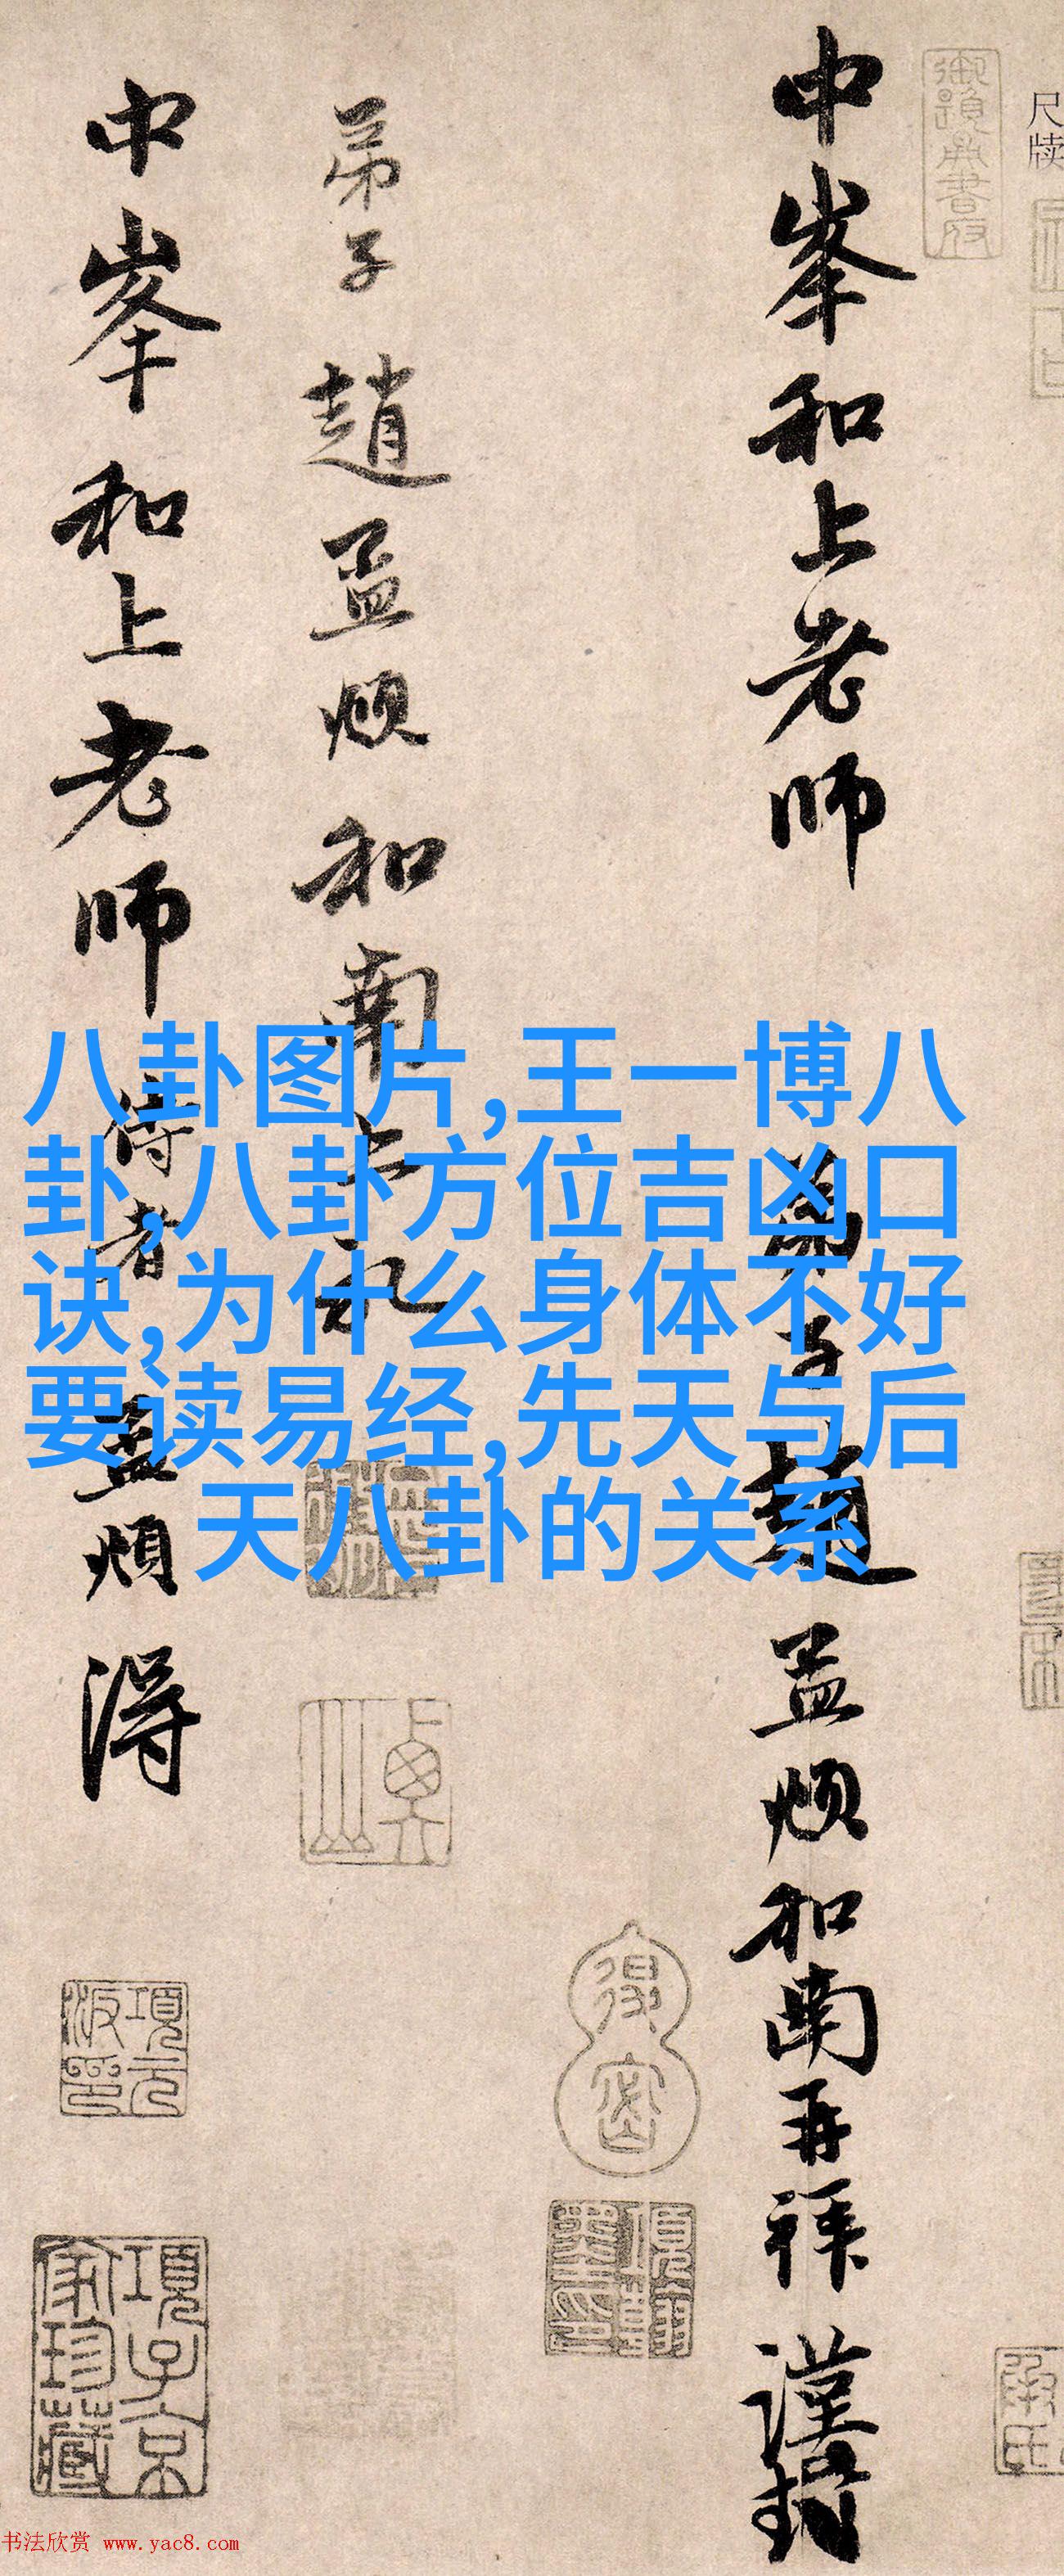 中峯和上老师
弟子趙孟頫和南再拜謹封
弟子趙孟頫和南上
中峯和上老师侍者
孟頫得
尺牍
八卦图片,王一博八
卦,八卦方位吉凶口
诀,为什么身体不好
要读易经,先天与后
天八卦的关系
項子京
家珍藏
书法欣赏 www.yac8.com